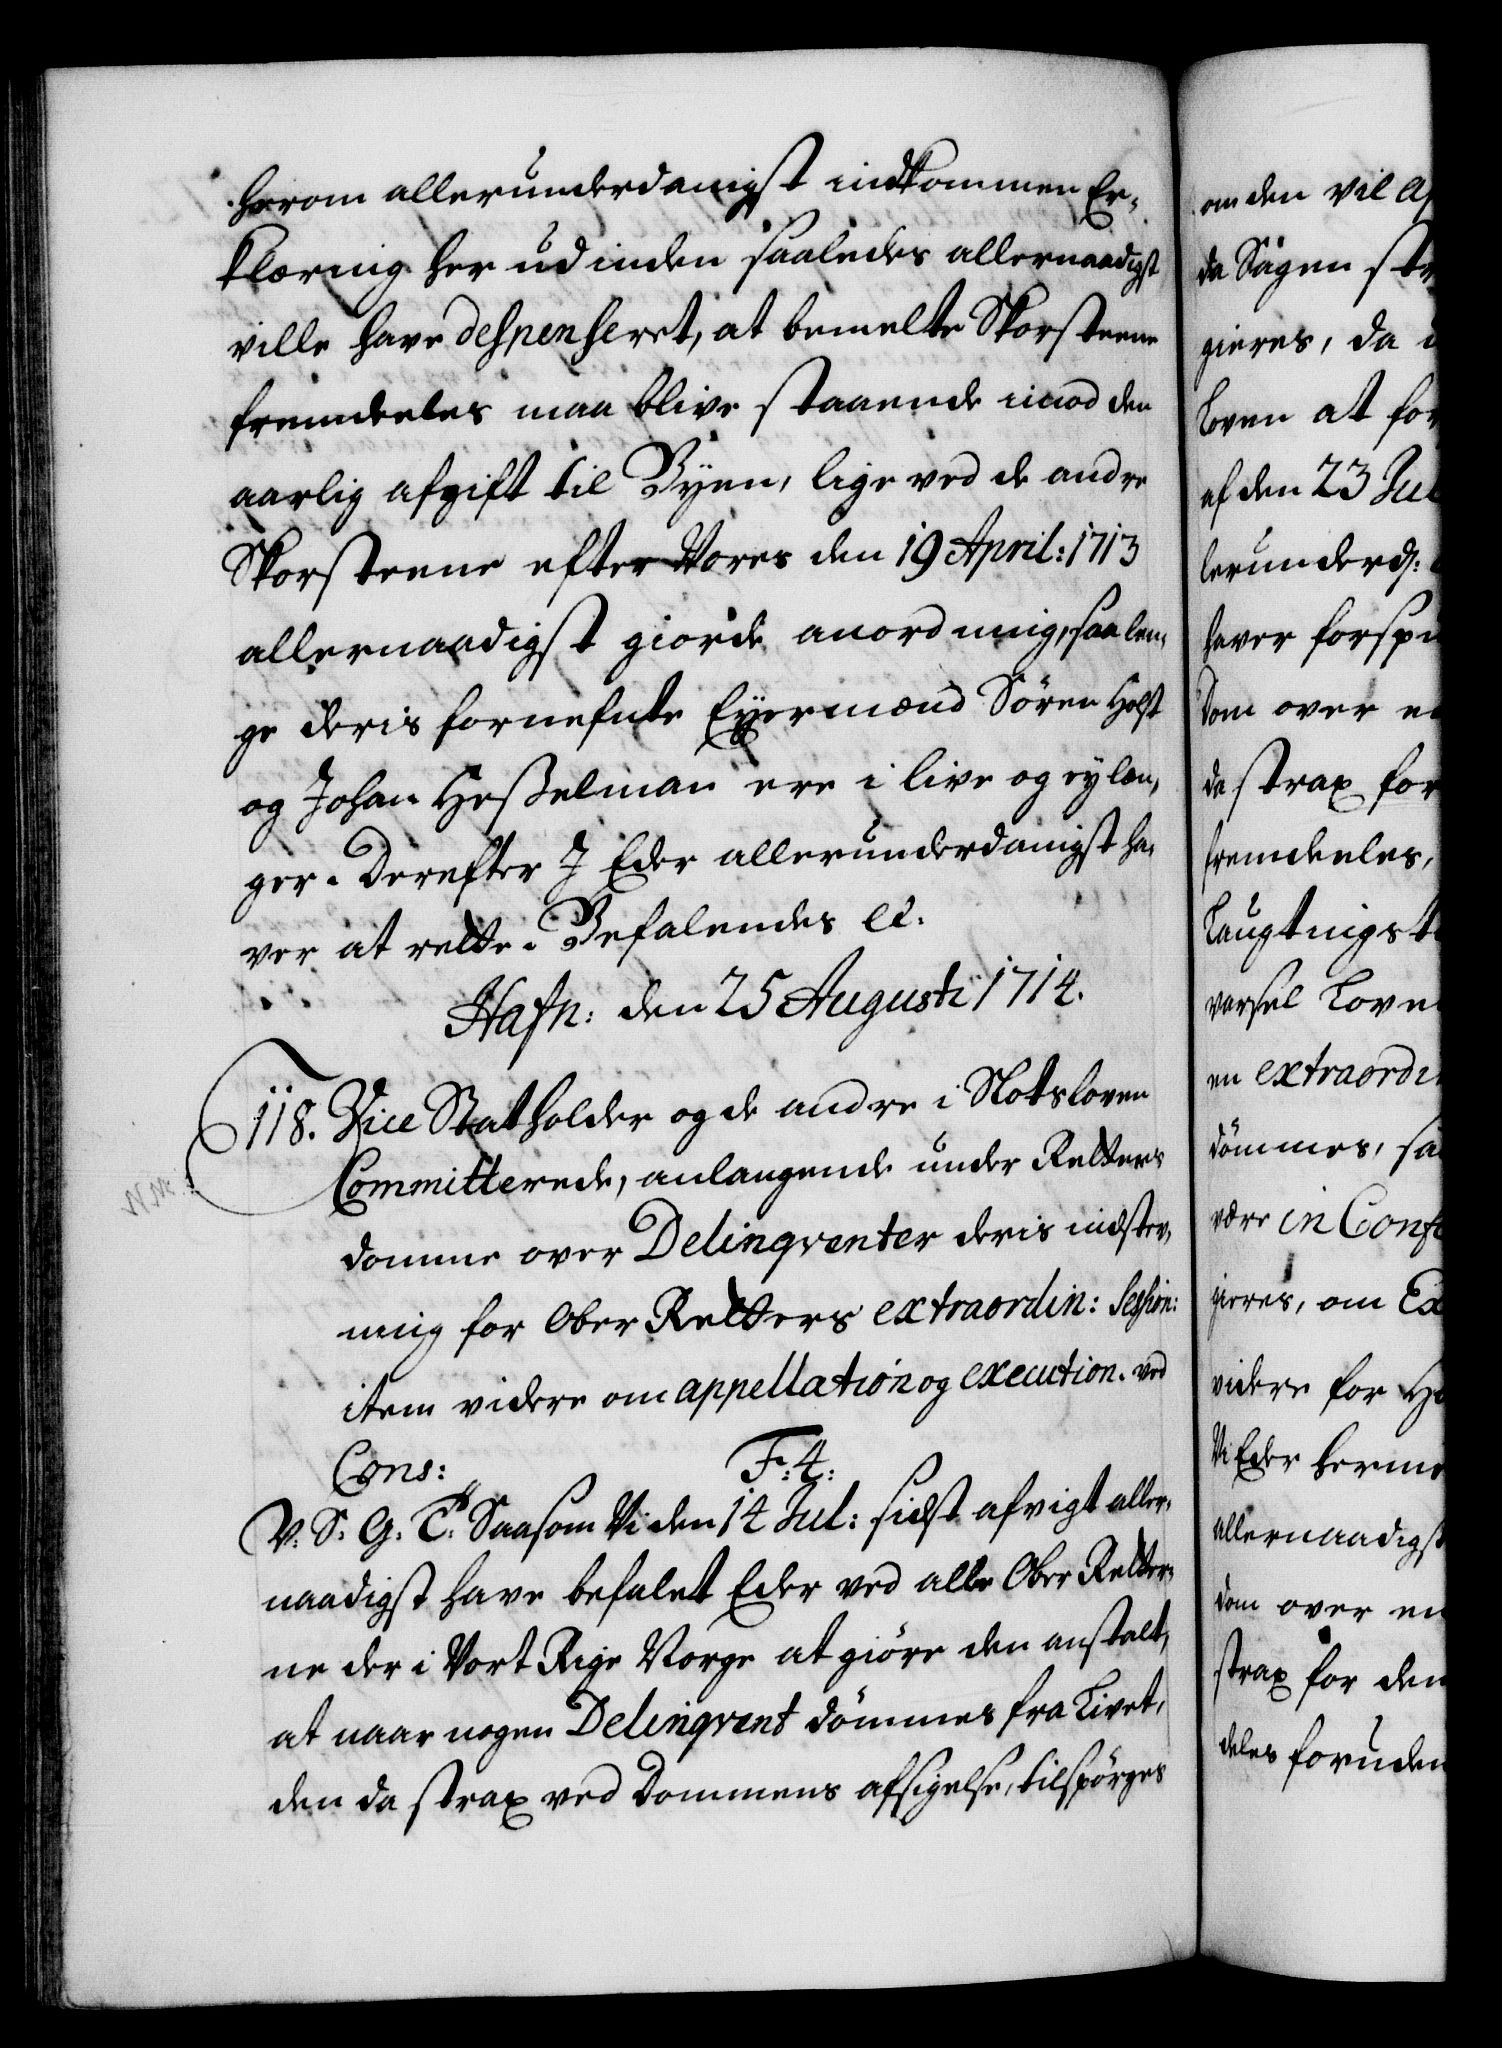 herom allerunderdanigst indkommen Er-
klæring her ud inden saaledes allernaadigst
ville have despenseret, at bemelte Skorsteene
fremdeeles maa blive staaende imod den
aarlig afgift til Byen, lige ved de andre
Skorsteene efter Vores den 19 April: 1713
allernaadigst giorde anordning, saa len-
ge deris fornefnte Eyermænd Sören Holst
og Johan Hesselman ere i live og ey læn-
ger. Derefter I Eder allerunderdanigst ha-
ver at rette. Befalendes etc.
Hafn: den 25 Augusti 1714.
118. Vice Statholder og de andre i Slotsloven
Committerede, anlangende under Retters
domme over Delinqventer deris indstev-
ning for Ober Retters extraordin: Session:
item videre om appellation og execution. ved
Cons: F: 4:
V. S. G. T. Saasom Vi den 14 Jul: sidst afvigt aller-
naadigst have befalet Eder ved alle Ober Retter-
ne der i Vort Rige Norge at giöre den anstalt,
at naar nogen Delinqvent dömmes fra Livet,
den da strax ved Dommens afsigelse, tilspörges
om den vil Ap
da Sagen str
gieres, da
Loven at for
af den 23 Jul
lerunderd:
haver forspu
Dom over en
da strax for
fremdeeles,
Laugtingst
varsel Love
en extraordi
dömmes, saa
være in Conf
gieres, om Ex
videre for H
Vi Eder herm
allernaadigst
dom over en
strax for den
deles foruden